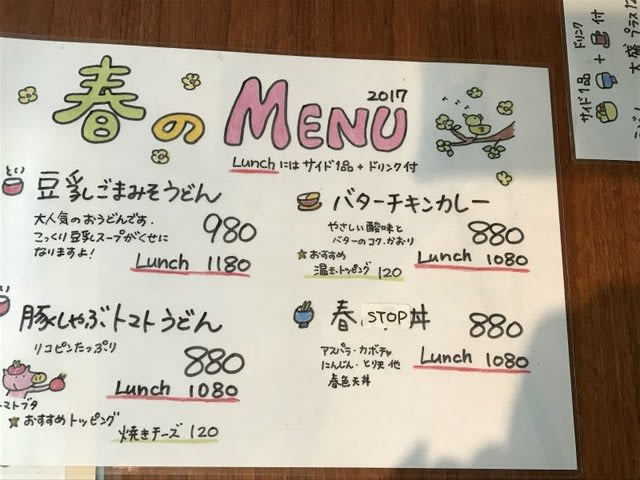 春の MENU 2017
Lunch にはサイド1品+ドリンク付
豆乳ごまみそうどん
大人気のおうどんです.
こっくり豆乳スープがくせに
なりますよ!
980
Lunch 1180
バターチキンカレー
やさしい酸味と
バターのコク.かおり
880
Lunch 1080
おすすめ
温モトッピング 120
豚しゃぶトマトうどん
リコピンたっぷり
880
Lunch 1080
トマトブタ
おすすめトッピング
焼きチーズ 120
春 STOP 丼
880
アスパラ・カボチャ
にんじん・とり天 他
春色天丼
Lunch 1080
ドリンク
サイド1品
+
付
大盛プラス